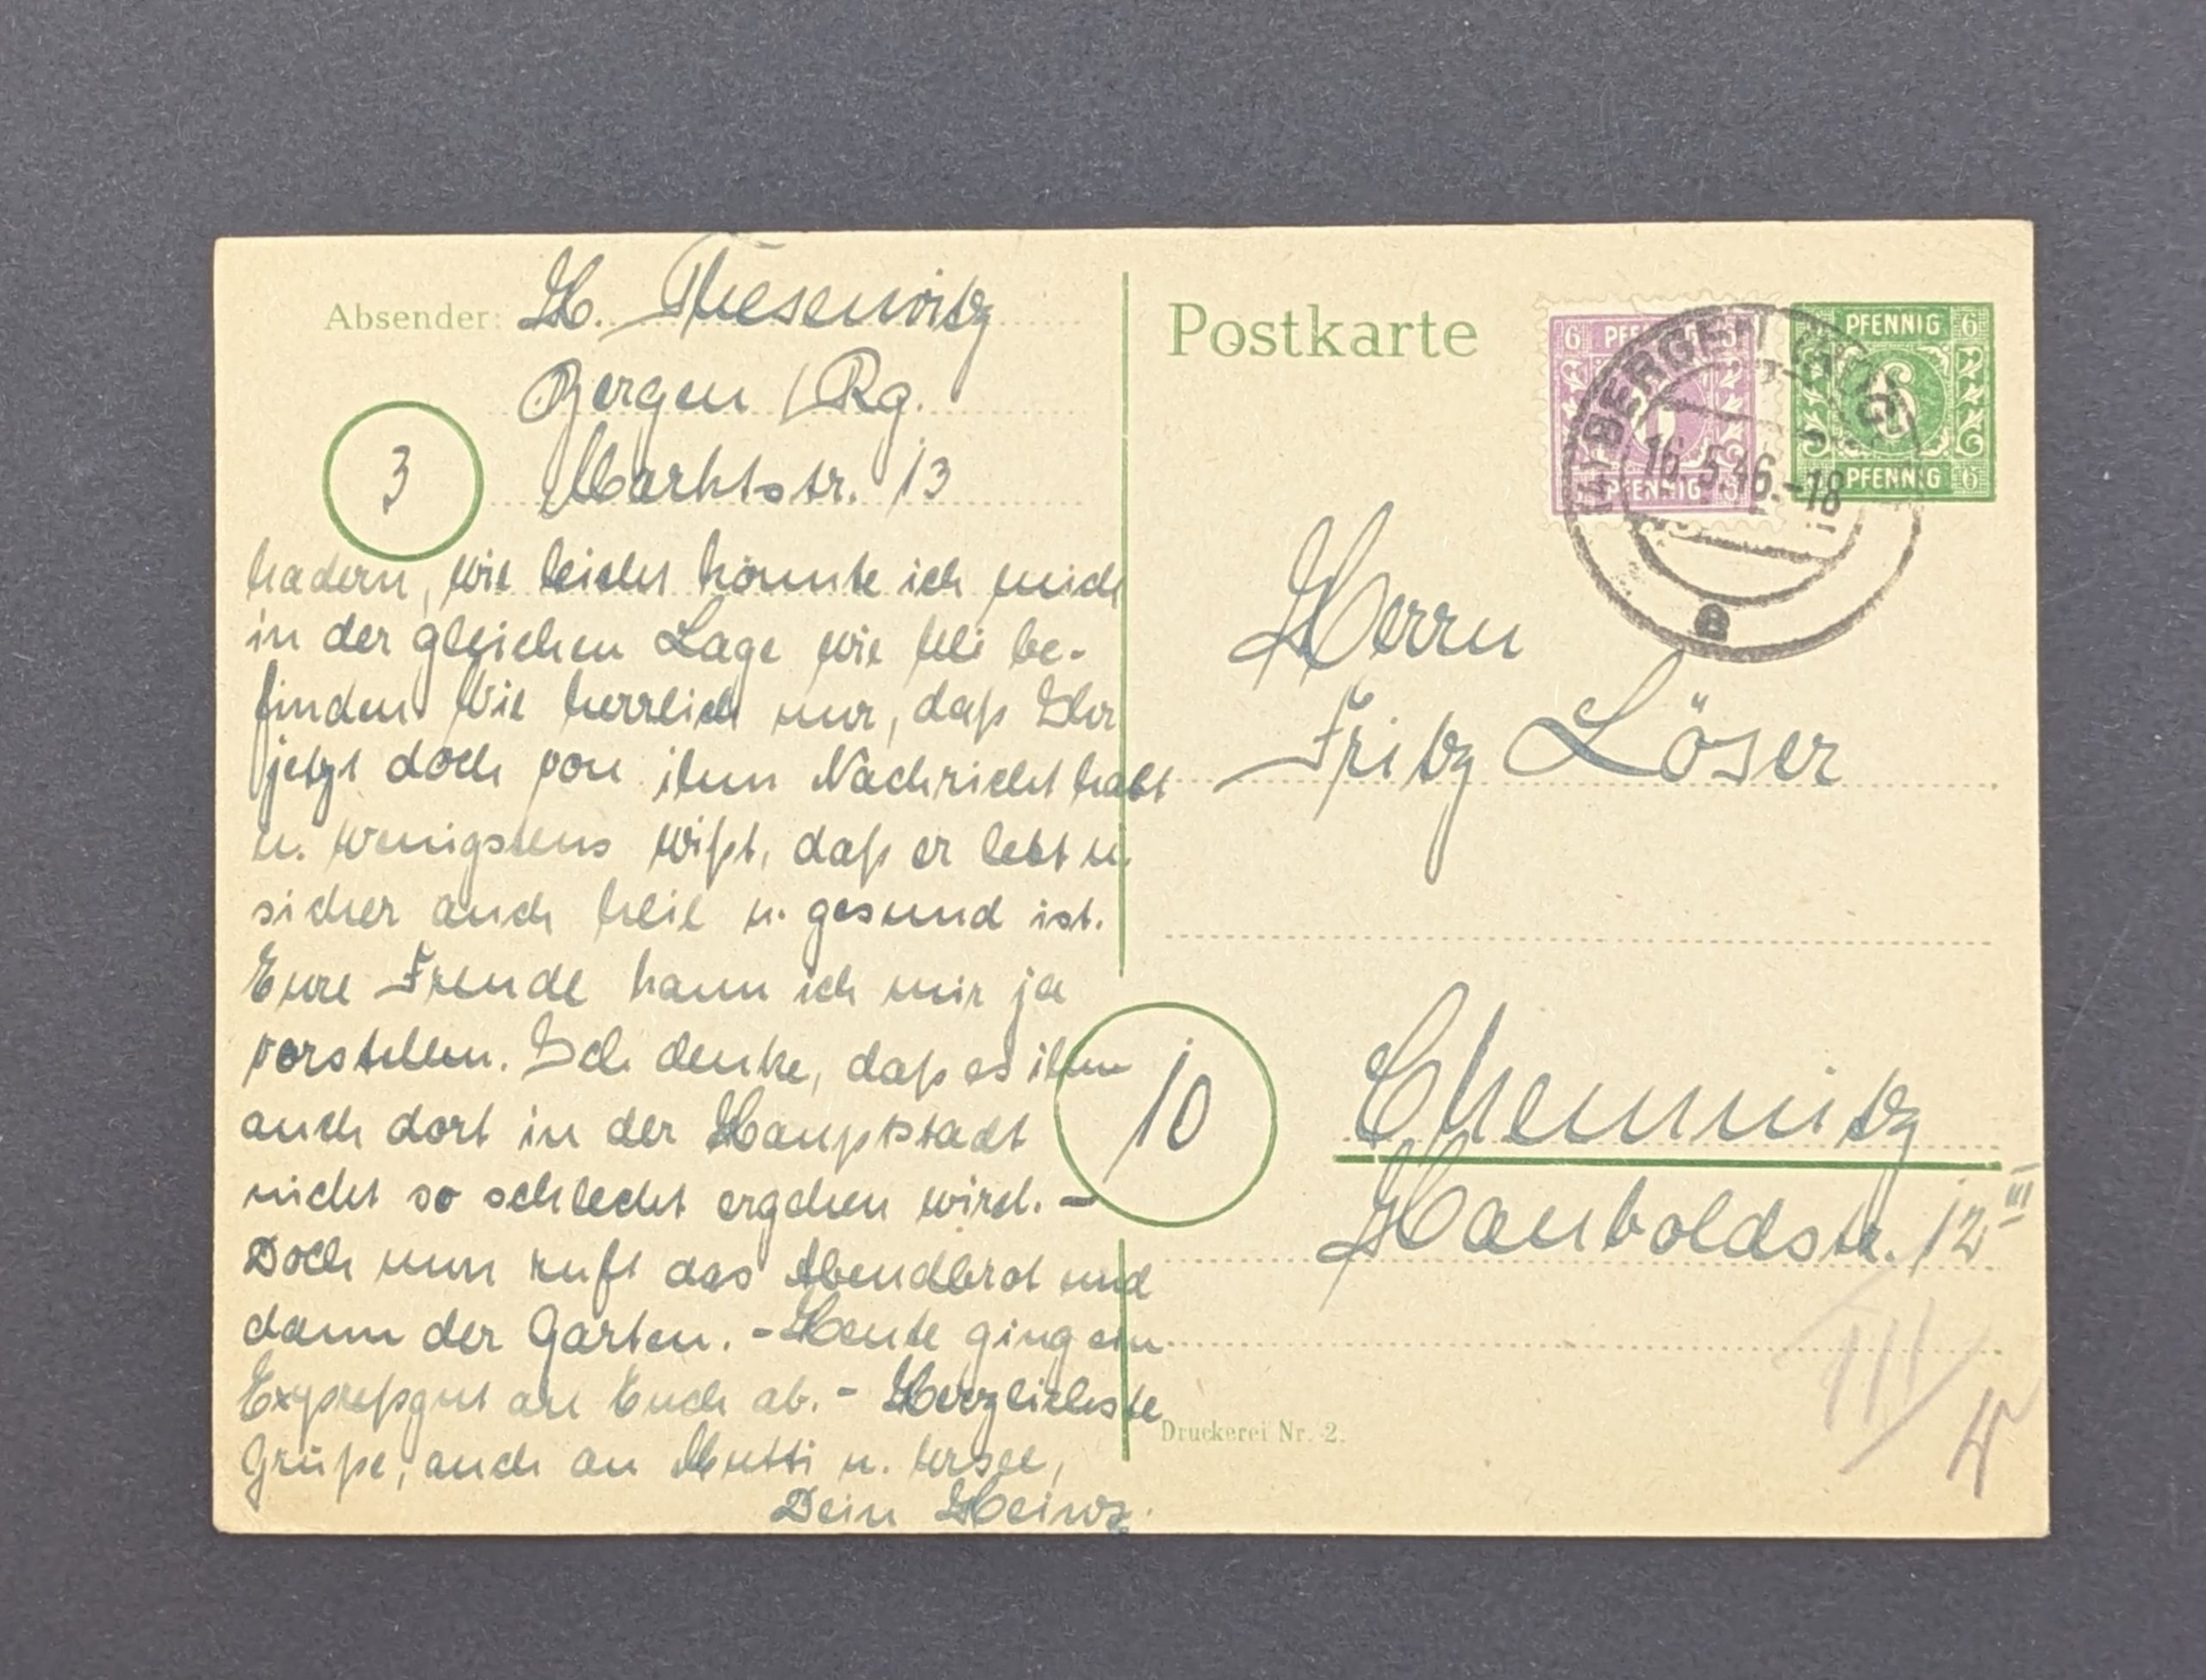 Absender: H. Thesenvitz
Bergen / Rg.
Marktstr. 13
3
hadern, wie leicht könnte ich mich
in der gleichen Lage wie be-
finden. Wie herrlich nur, daß Ihr
jetzt doch von ihm Nachricht habt
u. wenigstens wißt, daß er lebt u.
sicher auch heil u. gesund ist.
Eure Freude kann ich mir ja
vorstellen. Ich denke, daß es ihm
auch dort in der Hauptstadt
nicht so schlecht ergehen wird. –
Doch nun ruft das Abendbrot und
dann der Garten. – Heute ging ein
Expreßgut an Euch ab. – Herzlichste
Grüße, auch an Mutti u.
Dein Heinz.
Postkarte
6 PFENNIG 6
PFENNIG 6
PFENNIG 6
PFENNIG 6
BERGEN (RÜG)
16.5.46.-18
a
Herrn
Fritz Löser
10
Chemnitz
Hauboldstr. 12 III
III
Druckerei Nr. 2.